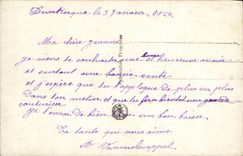 Dunkerque le 3 Janvier 1922
Ma chère Jeanne
Je viens te souhaiter une bonne et heureuse année
et surtout une bonne santé
et j'espère que tu t'appliques de plus en plus
dans ton métier et que tu feras bientôt une
couturière
Je t'envoie de bien un bon baiser
Ta tante qui vous aime